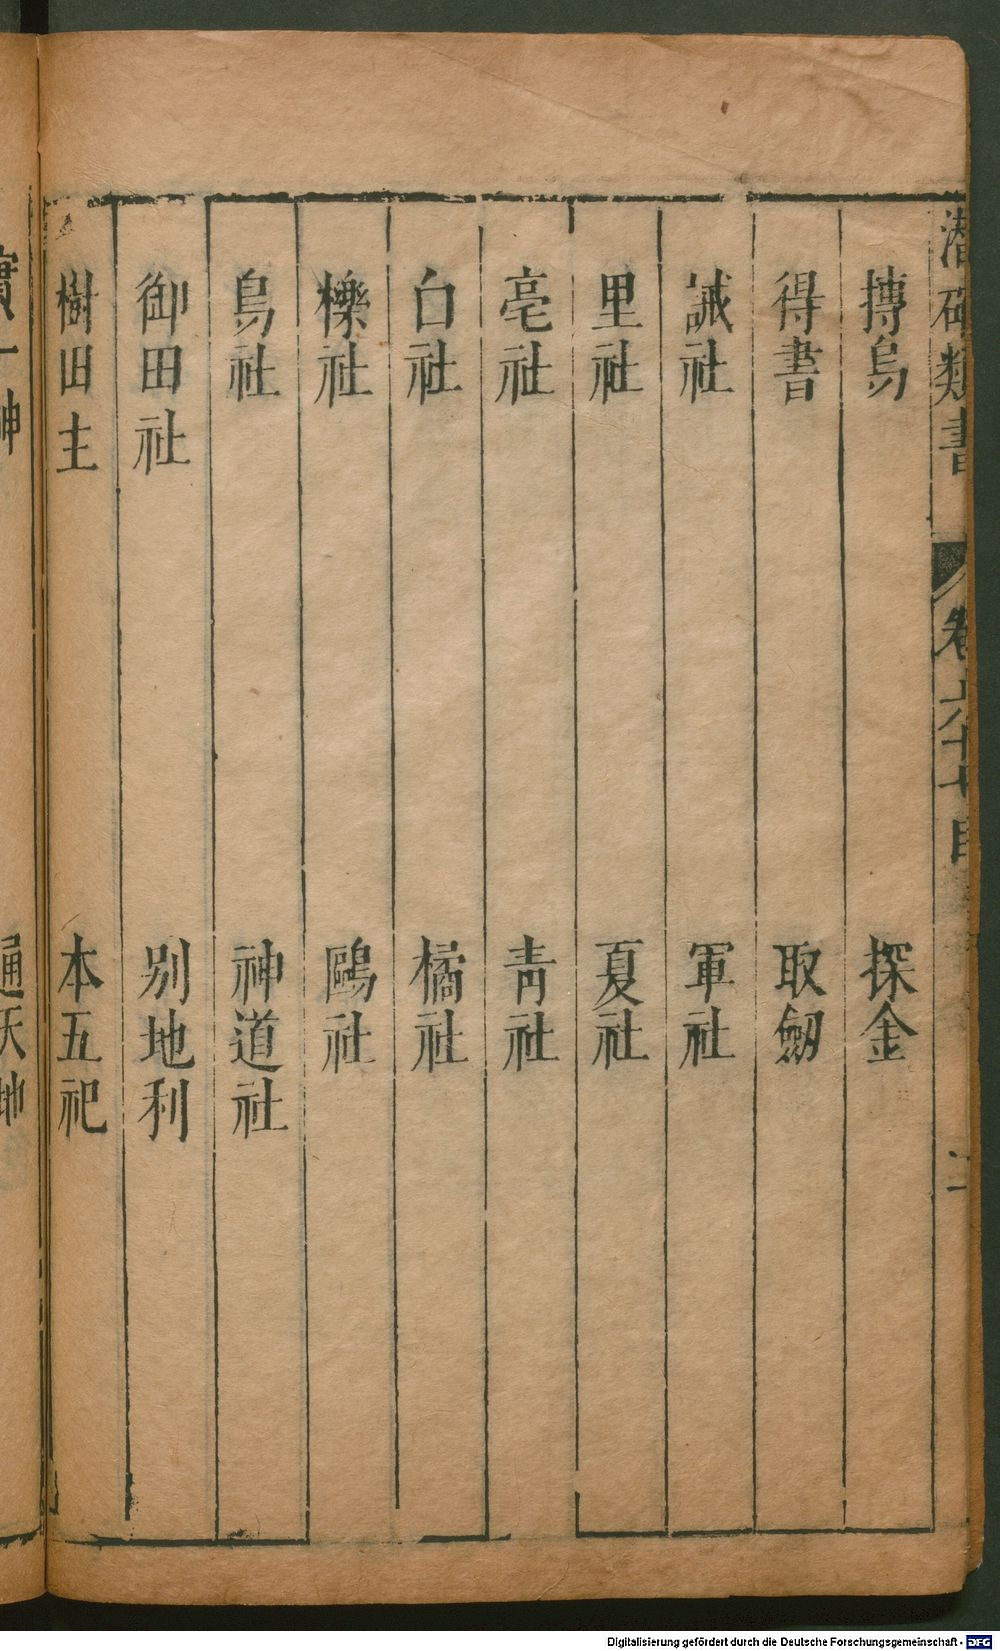 潛確類書 卷六十七目 二
摶烏 探金
得書 取劒
誡社 軍社
里社 夏社
亳社 青社
白社 橘社
櫟社 鷗社
鳥社 神道社
御田社 別地利
樹田主 本五祀
通天地
Digitalisierung gefördert durch die Deutsche Forschungsgemeinschaft - DFG